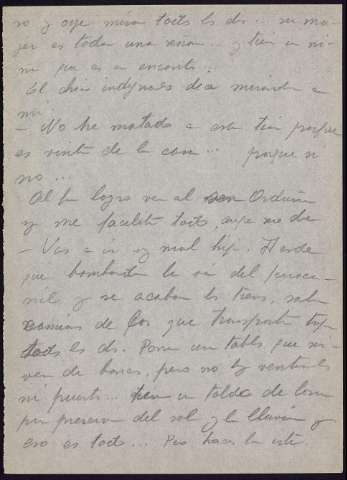 no y oye misa todos los dias... su mu-
jer es toda una señora... y tiene un ni-
ño que es un encanto...
El chico indignado dice mirando a
mi:
- No he matado a este tio porque
es                 de la casa... porque si
no...
Al fin logro ver al          Orduña
y me facilita todo, aunque me dice
- Vas a ir muy mal hijo. Desde
que bombardean la via del ferroca-
rril y se acaban los trenes, salen
camiones de       que transportan tropas
todos los dias. Ponen una tabla que sir-
ven de bancos, pero no hay ventanillas
ni puertas... tienen un toldo de lona
para preservar del sol y la lluvia y
eso es todo... Pero hacer la